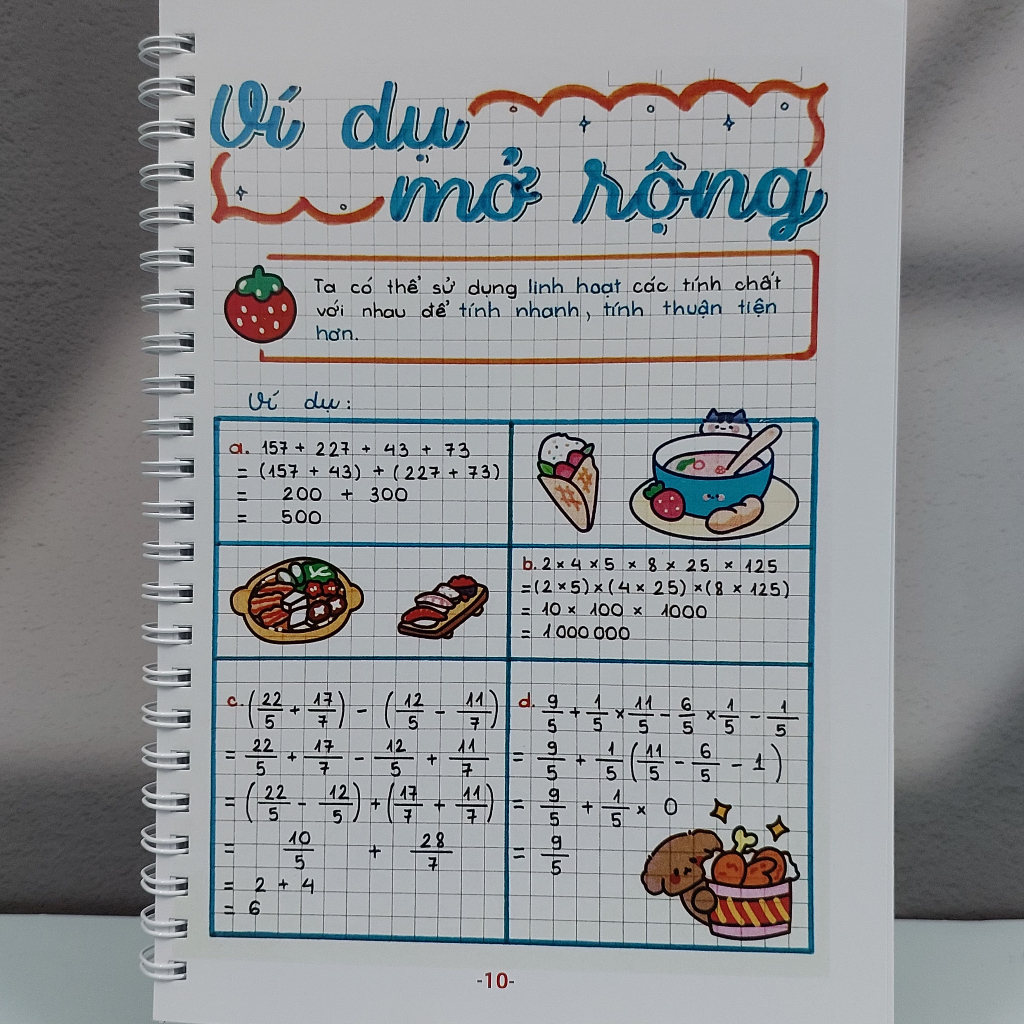 Ví dụ
mở rộng
Ta có thể sử dụng linh hoạt các tính chất
với nhau để tính nhanh, tính thuận tiện
hơn.
Ví dụ:
a. 157 + 227 + 43 + 73
= (157 + 43) + (227 + 73)
= 200 + 300
= 500
b. 2 × 4 × 5 × 8 × 25 × 125
= (2 × 5) × (4 × 25) × (8 × 125)
= 10 × 100 × 1000
= 1000000
c. (22/5 + 17/7) - (12/5 - 11/7)
= 22/5 + 17/7 - 12/5 + 11/7
= (22/5 - 12/5) + (17/7 + 11/7)
= 10/5 + 28/7
= 2 + 4
= 6
d. 9/5 + 1/5 × 11/5 - 6/5 × 1/5 - 1/5
= 9/5 + 1/5 (11/5 - 6/5 - 1)
= 9/5 + 1/5 × 0
= 9/5
-10-